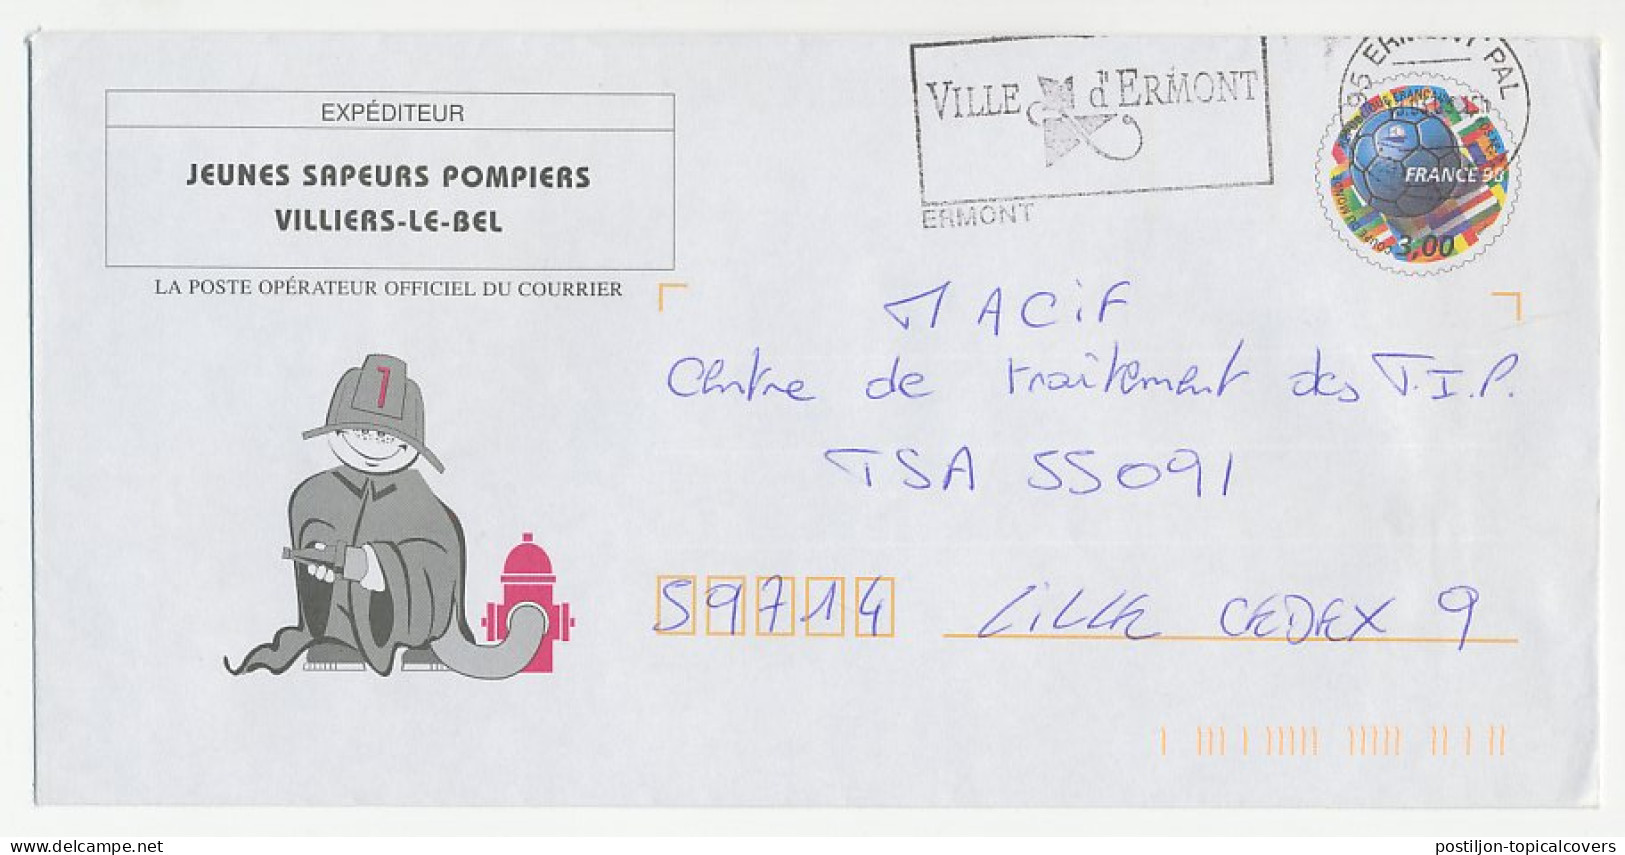 EXPÉDITEUR
JEUNES SAPEURS POMPIERS
VILLIERS-LE-BEL
LA POSTE OPÉRATEUR OFFICIEL DU COURRIER
VILLE d'ERMONT
ERMONT
95 ERMONT PAL
FRANCE 98
COUPE DU MONDE
3,00
1
MACIF
Centre de traîtement des T.I.P.
TSA 55091
59714 LILLE CEDEX 9
postiljon-topicalcovers